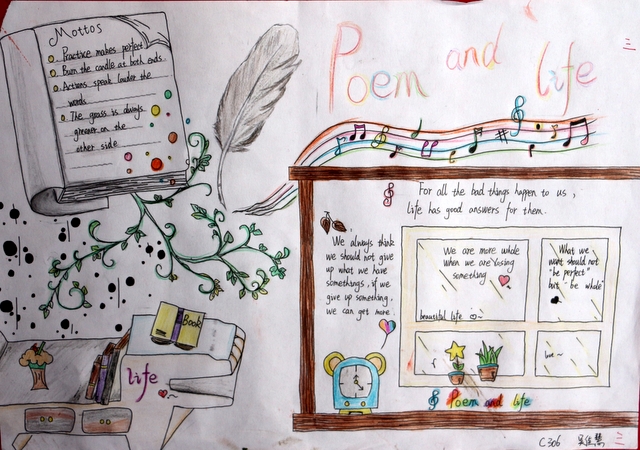 Mottos
Practice makes perfect
Burn the candle at both ends
Actions speak louder the
words
The grass is always
greener on the
other side
Poem and life
For all the bad things happen to us,
Life has good answers for them.
We always think
we should not give
up what we have
somethings, if we
give up something,
we can get more.
We are more whole
when we are losing
something
beautiful life
What we
want should not
"be perfect"
but "be whole"
love~
Book
life
Poem and life
C306
三
三